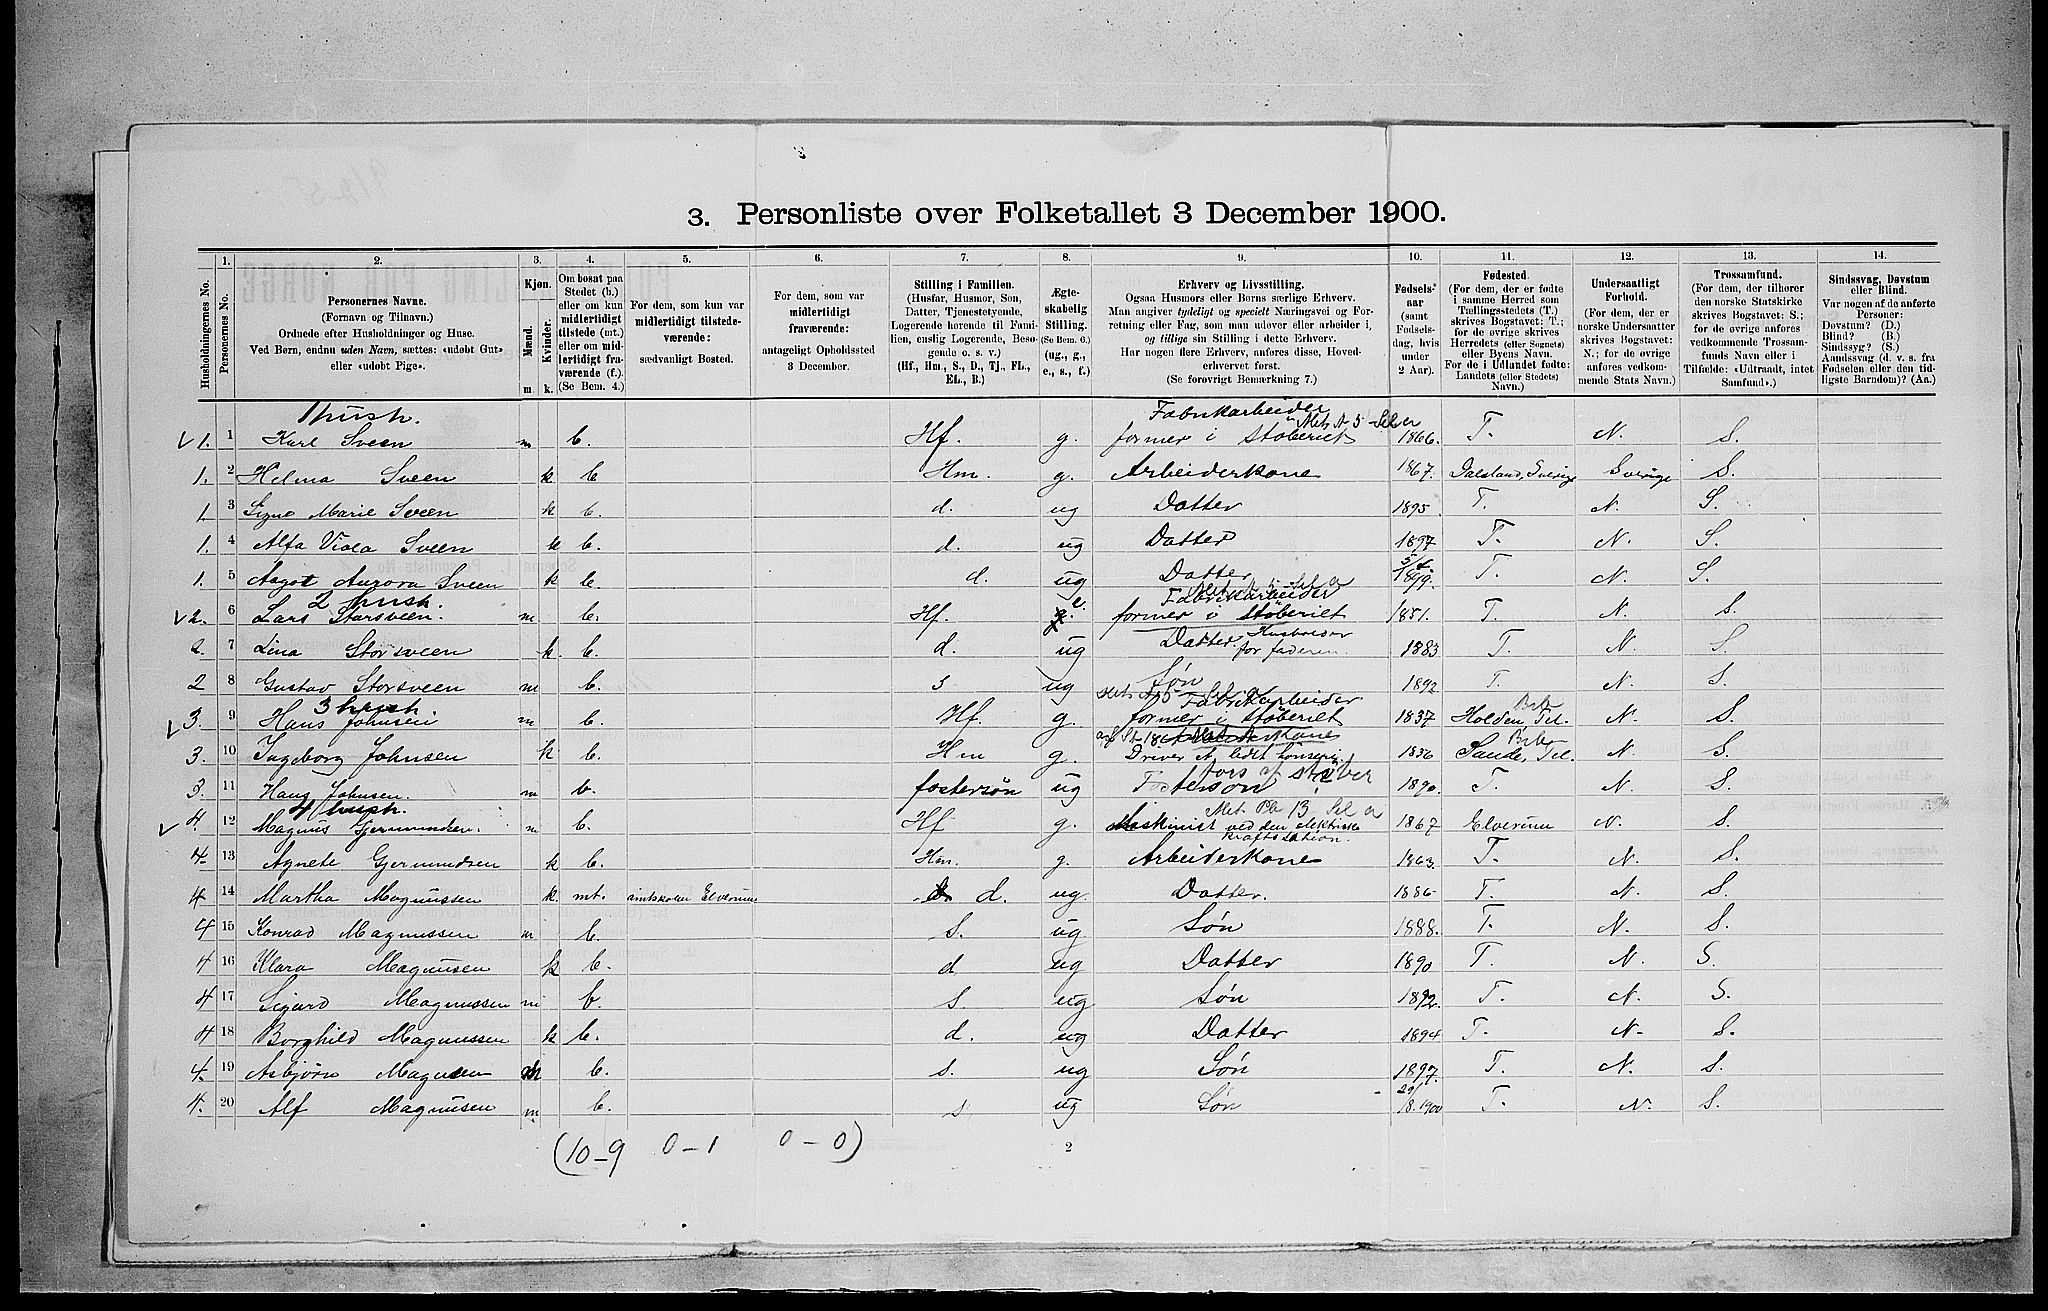 3. Personliste over Folketallet 3 December 1900.
1. 2. 3. 4. 5. 6. 7. 8. 9. 10. 11. 12. 13. 14.
Husholdningernes No.
Personernes No.
Personernes Navne.
(Fornavn og Tilnavn.)
Ordnede efter Husholdninger og Huse.
Ved Børn, endnu uden Navn, sættes: «udøbt Gut»
eller «udøbt Pige».
Kjøn.
Mænd. Kvinder.
m. k.
Om bosat paa
Stedet (b.)
eller om kun
midlertidigt
tilstede (mt.)
eller om mid-
lertidigt fra-
værende (f.).
(Se Bem. 4.)
For dem, som kun var
midlertidigt tilstede-
værende:
sædvanligt Bosted.
For dem, som var
midlertidigt
fraværende:
antageligt Opholdssted
3 December.
Stilling i Familien.
(Husfar, Husmor, Søn,
Datter, Tjenestetyende,
Logerende hørende til Fami-
lien, enslig Logerende, Besø-
gende o. s. v.)
(Hf., Hm., S., D., Tj., FL.,
EL., B.)
Ægte-
skabelig
Stilling.
(Se Bem. 6.)
(ug., g.,
e., s., f.)
Erhverv og Livsstilling.
Ogsaa Husmors eller Børns særlige Erhverv.
Man angiver tydeligt og specielt Næringsvei og For-
retning eller Fag, som man udøver eller arbeider i,
og tillige sin Stilling i dette Erhverv.
Har nogen flere Erhverv, anføres disse, Hoved-
erhvervet først.
(Se forøvrigt Bemærkning 7.)
Fødsels-
aar
(samt
Fødsels-
dag, hvis
under
2 Aar).
Fødested.
(For dem, der er fødte
i samme Herred som
Tællingsstedets (T.)
skrives Bogstavet: T.;
for de øvrige skrives
Herredets (eller Sognets)
eller Byens Navn.
For de i Udlandet fødte:
Landets (eller Stedets)
Navn.)
Undersaatligt
Forhold.
(For dem, der er
norske Undersaatter
skrives Bogstavet:
N.; for de øvrige
anføres vedkom-
mende Stats Navn.)
Trossamfund.
(For dem, der tilhører
den norske Statskirke
skrives Bogstavet: S.;
for de øvrige anføres
vedkommende Trossam-
funds Navn eller i
Tilfælde: «Udtraadt, intet
Samfund».)
Sindssvag, Døvstum
eller Blind.
Var nogen af de anførte
Personer:
Døvstum? (D.)
Blind? (B.)
Sindssyg? (S.)
Aandssvag (d. v. s. fra
Fødselen eller den tid-
ligste Barndom)? (Aa.)
1 hush. Fabrikarbeider
1. 1 Karl Sveen m b. Hf. g. former i Støberiet 1866. T. N. S.
1. 2 Helma Sveen k b Hm. g. Arbeiderkone 1867. Dalsland, Sverige Sverige S.
1. 3 Signe Marie Sveen k b. d. ug Datter 1895. T. N. S.
1. 4 Alfa Viola Sveen k b. d. ug Datter 1897 T. N. S.
1. 5 Aagot Aurora Sveen k b. d. ug Datter 1899. T. N. S.
2 hush. Fabrikarbeider
2. 6 Lars Storsveen. m b. Hf. e. former i Støberiet 1851. T. N. S.
2 7 Lina Storsveen k b. d. ug Datter. Husholder for faderen. 1883 T. N. S.
2 8 Gustav Storsveen m b. s ug Søn 1892 T. N. S.
3 hush Fabrikarbeider
3. 9 Hans Johnsen m b. Hf. g. former i Støberiet 1837 Holden, Tel. N. S.
3. 10 Ingeborg Johnsen k b. Hm g. Driver et lidet 1836 Sande, Tel. N. S.
3. 11 Hans Johnsen. m b. fostersøn ug Fostersøn 1890. T. N S.
4 hush.
4. 12 Magnus Gjermundsen. m b. Hf g. Maskinist ved den elektriske kraftstation. 1867 Elverum N. S.
4. 13 Agnete Gjermundsen k b. Hm. g. Arbeiderkone 1863. T. N. S.
4 14 Martha Magnussen k. mt. amtskolen Elverum d. ug. Datter. 1886 T. N. S.
4 15 Konrad Magnussen m b. S. ug Søn 1888. T. N. S.
4 16 Klara Magnusen k b. d ug Datter 1890 T. N. S.
4 17 Sigurd Magnussen m b. s ug Søn 1892. T. N. S.
4 18 Borghild Magnussen k b. d. ug Datter 1894 T. N. S.
4. 19 Asbjørn Magnusen m b. s. ug Søn 1897. T. N. S.
4. 20 Alf Magnusen m. b. s ug Søn 29/8. 1900 T. N. S.
(10-9 0-1 0-0)
2